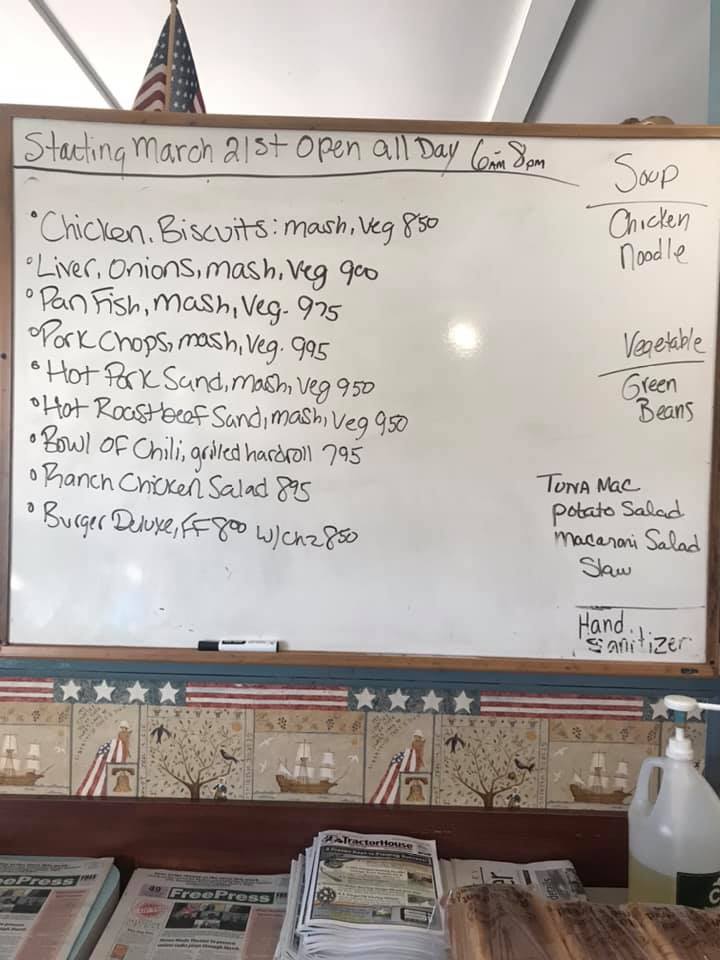 Starting March 21st Open all Day 6AM 8pm
• Chicken, Biscuits: mash, Veg 850
• Liver, Onions, mash, Veg 900
• Pan Fish, mash, Veg. 975
• Pork Chops, mash, Veg. 995
• Hot Pork Sand, mash, Veg 950
• Hot Roast beef Sand, mash, Veg 950
• Bowl of Chili, grilled hardroll 795
• Ranch Chicken Salad 895
• Burger Deluxe, FF 800 w/chz 850
Soup
Chicken
Noodle
Vegetable
Green
Beans
Tuna Mac
potato Salad
macaroni Salad
Slaw
Hand
Sanitizer
eePress
49
FreePress
TractorHouse